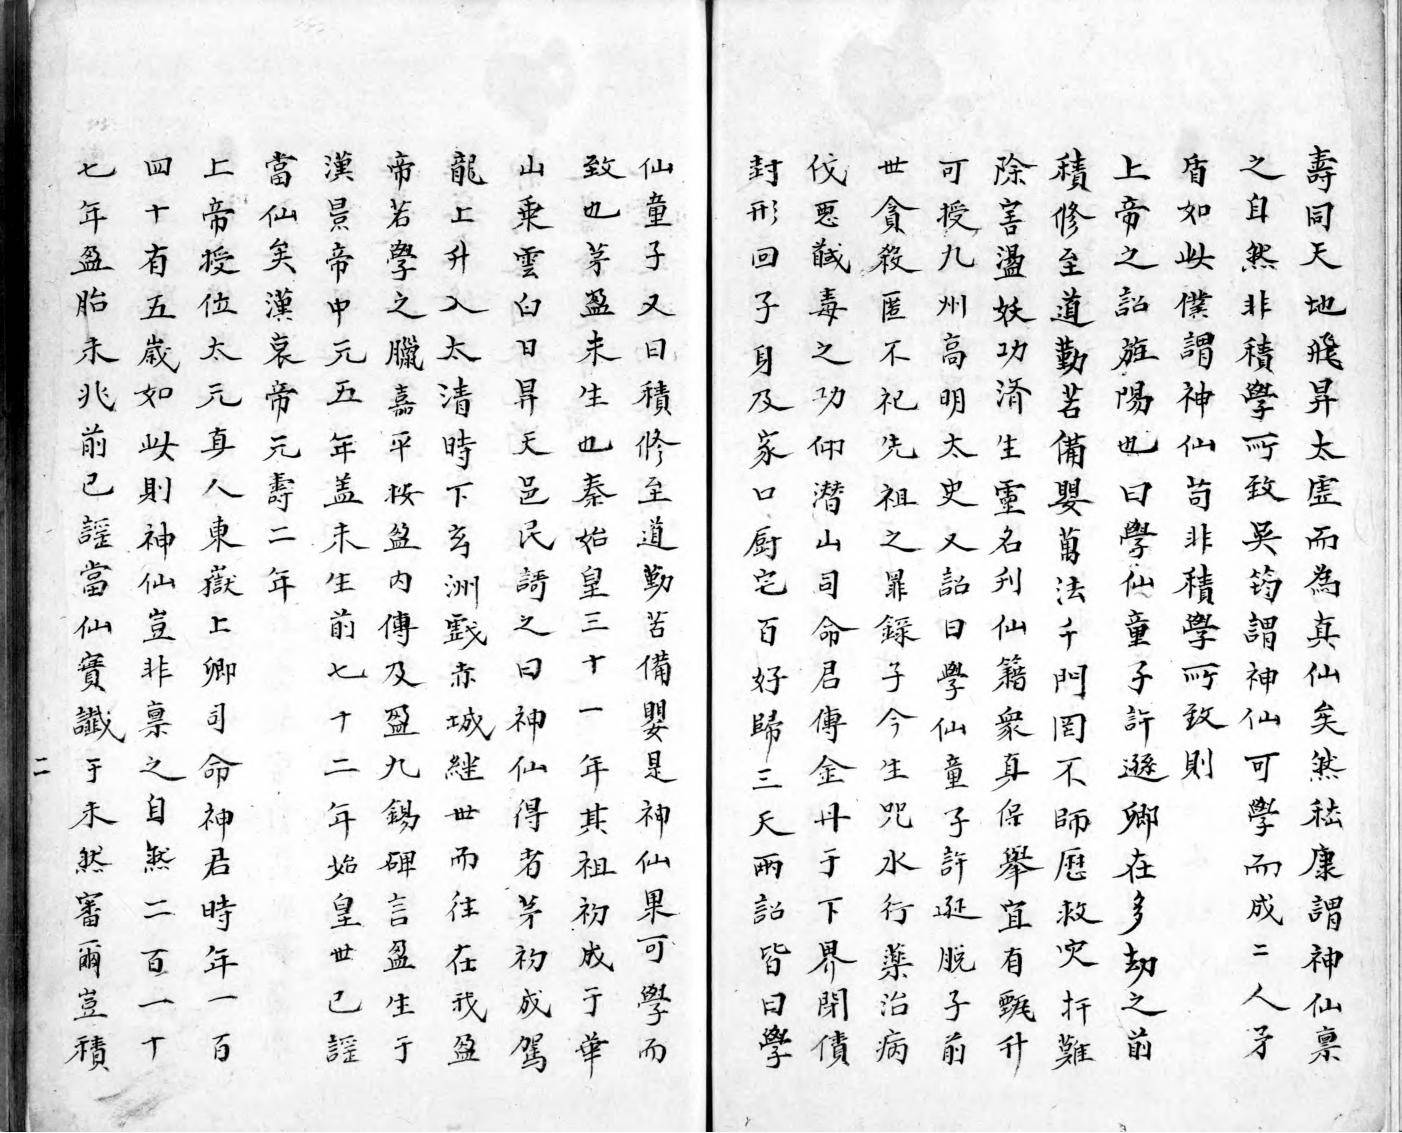 壽同天地飛昇太虛而為真仙矣然嵇康謂神仙稟
之自然非積學所致吳筠謂神仙可學而成二人矛
盾如此僕謂神仙苟非積學所致則
上帝之詔旌陽也曰學仙童子許遜卿在多劫之前
積修至道勤苦備嬰萬法千門罔不師歷救灾扞難
除害盪妖功濟生靈名刋仙籍衆真保舉宜有甄升
可授九州高明太史又詔曰學仙童子許遜脫子前
世貪殺匿不祀先祖之罪錄子今生咒水行藥治病
伐惡馘毒之功仰潜山司命君傳金丹于下界閉債
封形回子身及家口厨宅百好歸三天兩詔皆曰學
仙童子又曰積修至道勤苦備嬰是神仙果可學而
致也茅盈未生也秦始皇三十一年其祖初成于華
山乗雲白日昇天邑民謌之曰神仙得者茅初成駕
龍上升入太清時下玄洲戲赤城継世而往在我盈
帝若學之臘嘉平按盈内傳及盈九錫碑言盈生于
漢景帝中元五年盖未生前七十二年始皇世已謡
當仙矣漢哀帝元壽二年
上帝授位太元真人東嶽上卿司命神君時年一百
四十有五歲如此則神仙豈非稟之自然二百一十
七年盈胎未兆前已謡當仙實讖于未然審爾豈積
二